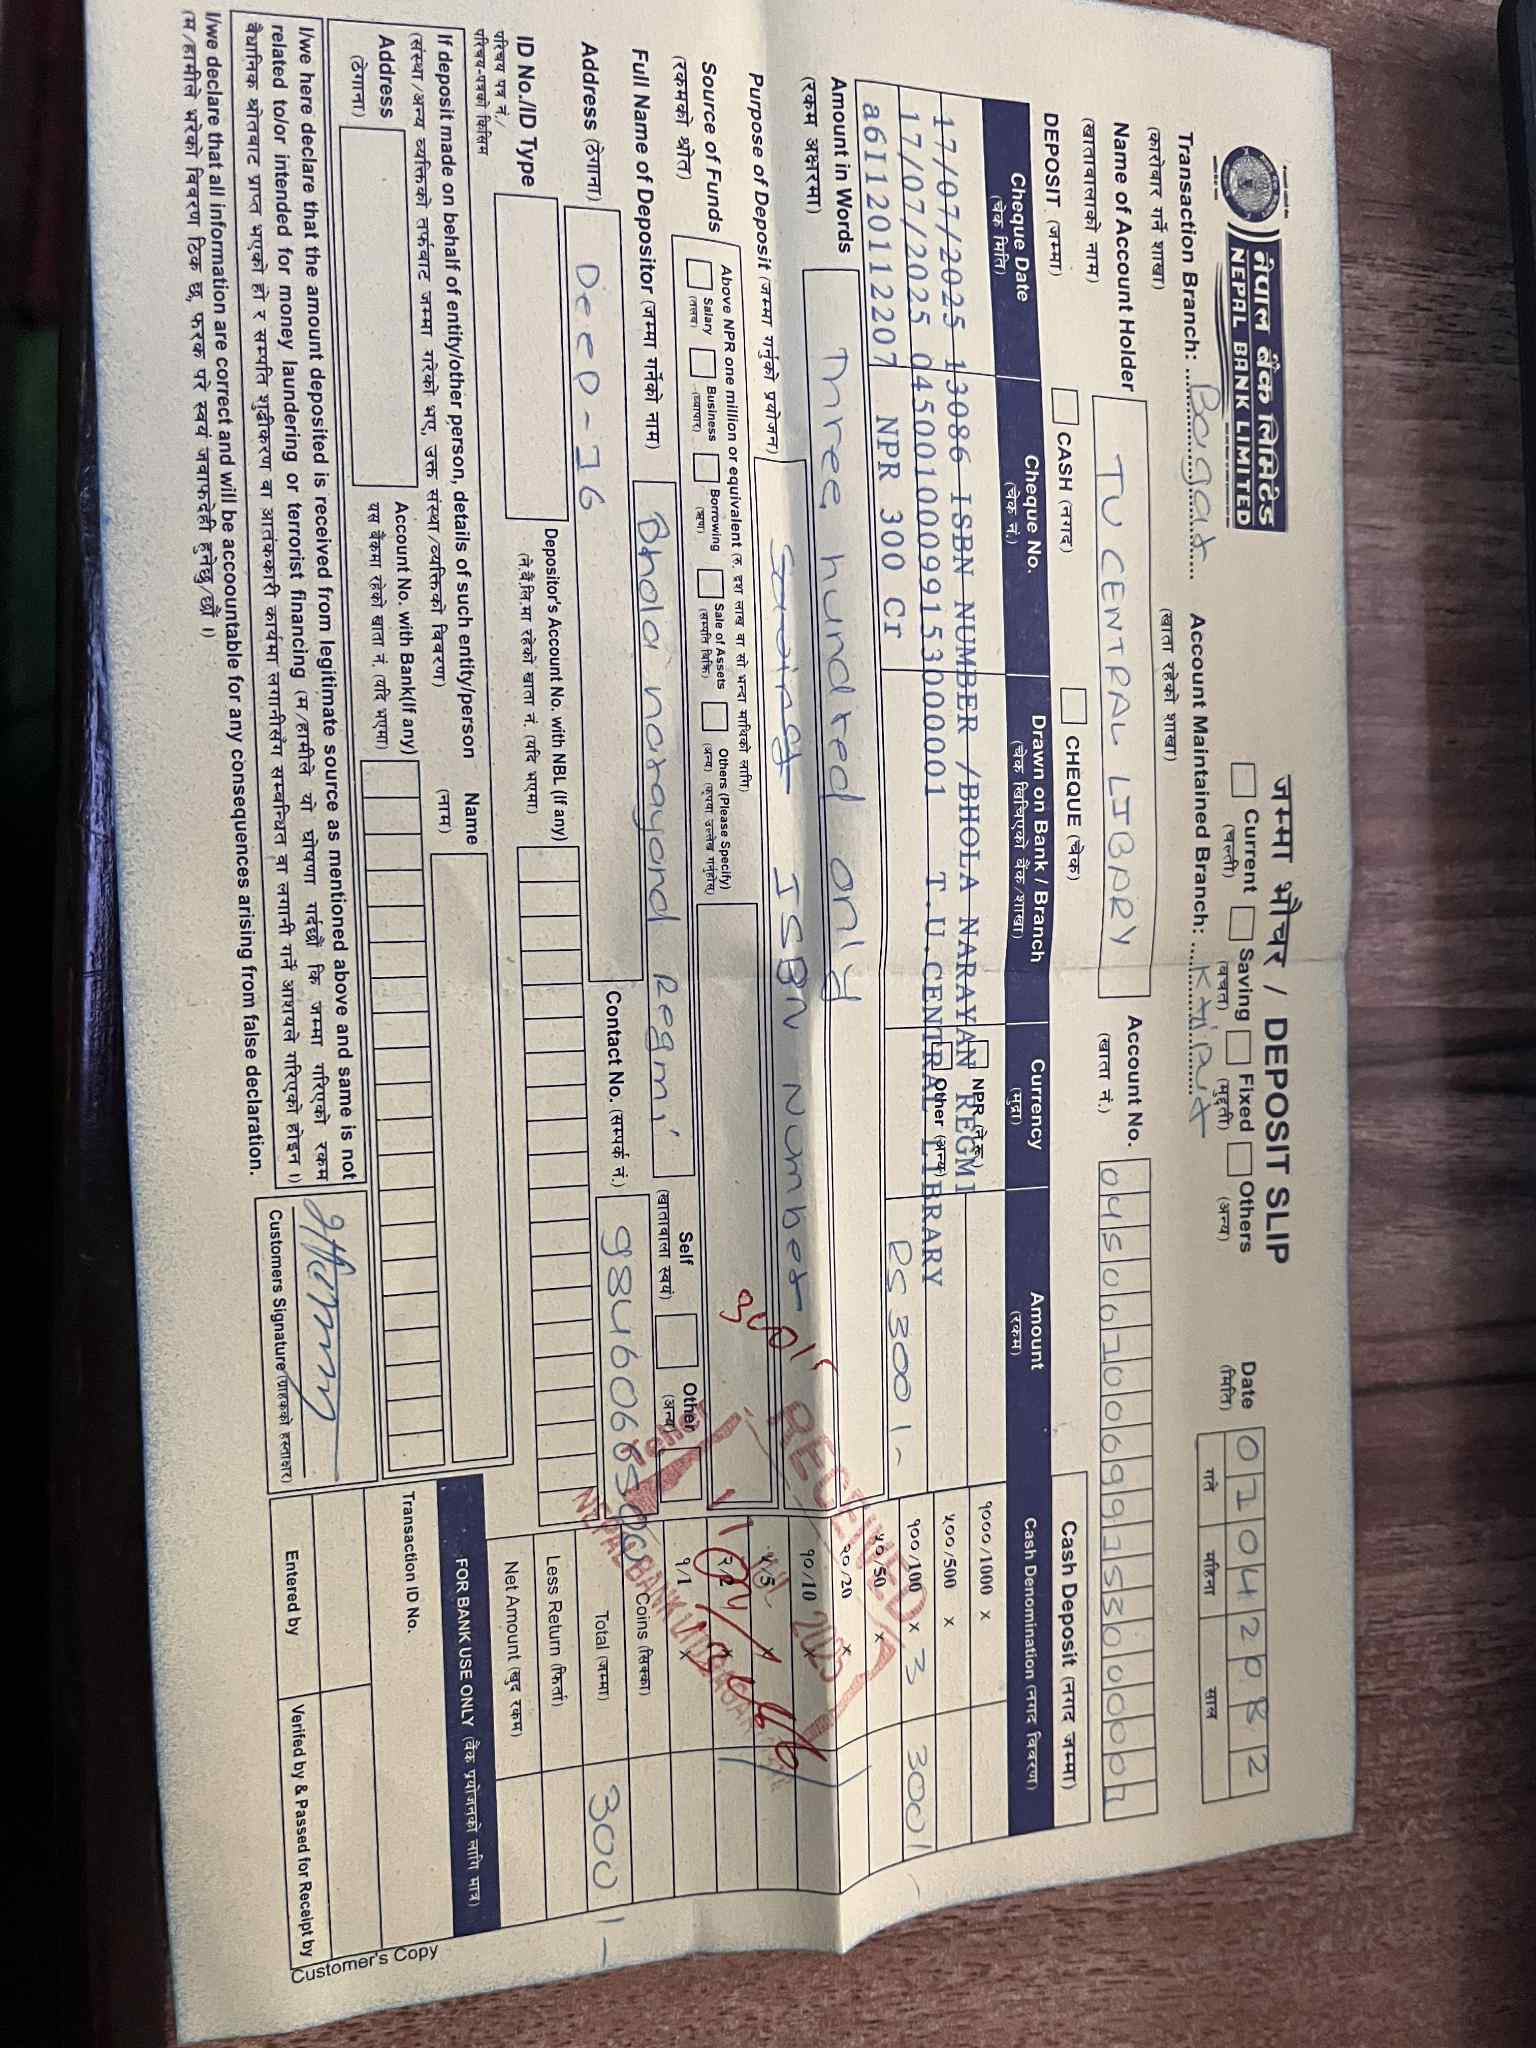 नेपाल बैंक लिमिटेड
NEPAL BANK LIMITED
जम्मा भौचर / DEPOSIT SLIP
Current (चल्ती) Saving (बचत) Fixed (मुद्दती) Others (अन्य)
Date (मिति) 01042082
गते महिना साल
Transaction Branch: Bagar
(कारोबार गर्ने शाखा)
Account Maintained Branch: Kirtipur
(खाता रहेको शाखा)
Name of Account Holder TU CENTRAL LIBRARY
(खातावालाको नाम)
Account No.
(खाता नं.)
DEPOSIT (जम्मा) CASH (नगद) CHEQUE (चेक)
Cash Deposit (नगद जम्मा)
Cheque Date (चेक मिति) Cheque No. (चेक नं.) Drawn on Bank / Branch (चेक खिचिएको बैंक/शाखा) Currency (मुद्रा) Amount (रकम) Cash Denomination (नगद विवरण)
NPR (ने.रु.)
Other (अन्य)
17/07/2025 13086 ISBN NUMBER /BHOLA NARAYAN REGMI
17/07/2025 04500100099153000001 T.U.CENTRAL LIBRARY
a6111201112207 NPR 300 Cr
RS 300/-
१०००/1000 x
५००/500 x
१००/100 x 3 300/-
५०/50 x
२०/20 x
१०/10 x
५/5 x
२/2 x
१/1 x
Coins (सिक्का)
Total (जम्मा) 300/-
Less Return (फिर्ता)
Net Amount (खुद रकम)
Amount in Words Three hundred only
(रकम अक्षरमा)
Purpose of Deposit (जम्मा गर्नुको प्रयोजन) ISBN Number
Source of Funds
(रकमको श्रोत)
Above NPR one million or equivalent (रु. दश लाख वा सो भन्दा माथिको लागि)
Salary (तलब) Business (व्यापार) Borrowing (ऋण) Sale of Assets (सम्पत्ति बिक्रि) Others (Please Specify) (अन्य) (कृपया उल्लेख गर्नुहोस्)
Full Name of Depositor (जम्मा गर्नेको नाम) Bhola narayand Regmi
Self (खातावाला स्वयं) Other (अन्य)
Address (ठेगाना) Deep-16
Contact No. (सम्पर्क नं.)
ID No./ID Type
परिचय पत्र नं./
परिचय-पत्रको किसिम
Depositor's Account No. with NBL (If any)
(ने.बैं.लि.मा रहेको खाता नं. (यदि भएमा)
If deposit made on behalf of entity/other person, details of such entity/person
(संस्था/अन्य व्यक्तिको तर्फबाट जम्मा गरेको भए, उक्त संस्था/व्यक्तिको विवरण)
Name
(नाम)
Address
(ठेगाना)
Account No. with Bank(If any)
यस बैंकमा रहेको खाता नं. (यदि भएमा)
I/we here declare that the amount deposited is received from legitimate source as mentioned above and same is not
related to/or intended for money laundering or terrorist financing (म/हामीले यो घोषणा गर्दछौं कि जम्मा गरिएको रकम
वैधानिक श्रोतबाट प्राप्त भएको हो र सम्पत्ति शुद्धीकरण वा आतंककारी कार्यमा लगानीसँग सम्बन्धित वा लगानी गर्ने आशयले गरिएको होइन ।)
I/we declare that all information are correct and will be accountable for any consequences arising from false declaration.
(म/हामीले भरेको विवरण ठिक छ, फरक परे स्वयं जवाफदेही हुनेछु/छौं ।)
Customers Signature (ग्राहकको हस्ताक्षर)
FOR BANK USE ONLY (बैंक प्रयोजनको लागि मात्र)
Transaction ID No.
Entered by
Verifed by & Passed for Receipt by
Customer's Copy
RECEIVED
NEPAL BANK LTD.